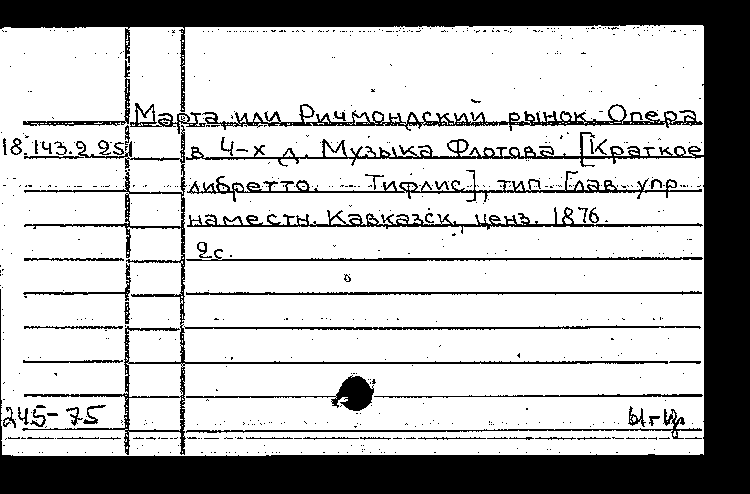 Марта, или Ричмондский рынок. Опера
18.143.2.251 в 4-х д. Музыка Флотова. [Краткое
либретто. - Тифлис], тип. Глав. упр.
наместн. Кавказск., ценз. 1876.
2с.
245-75